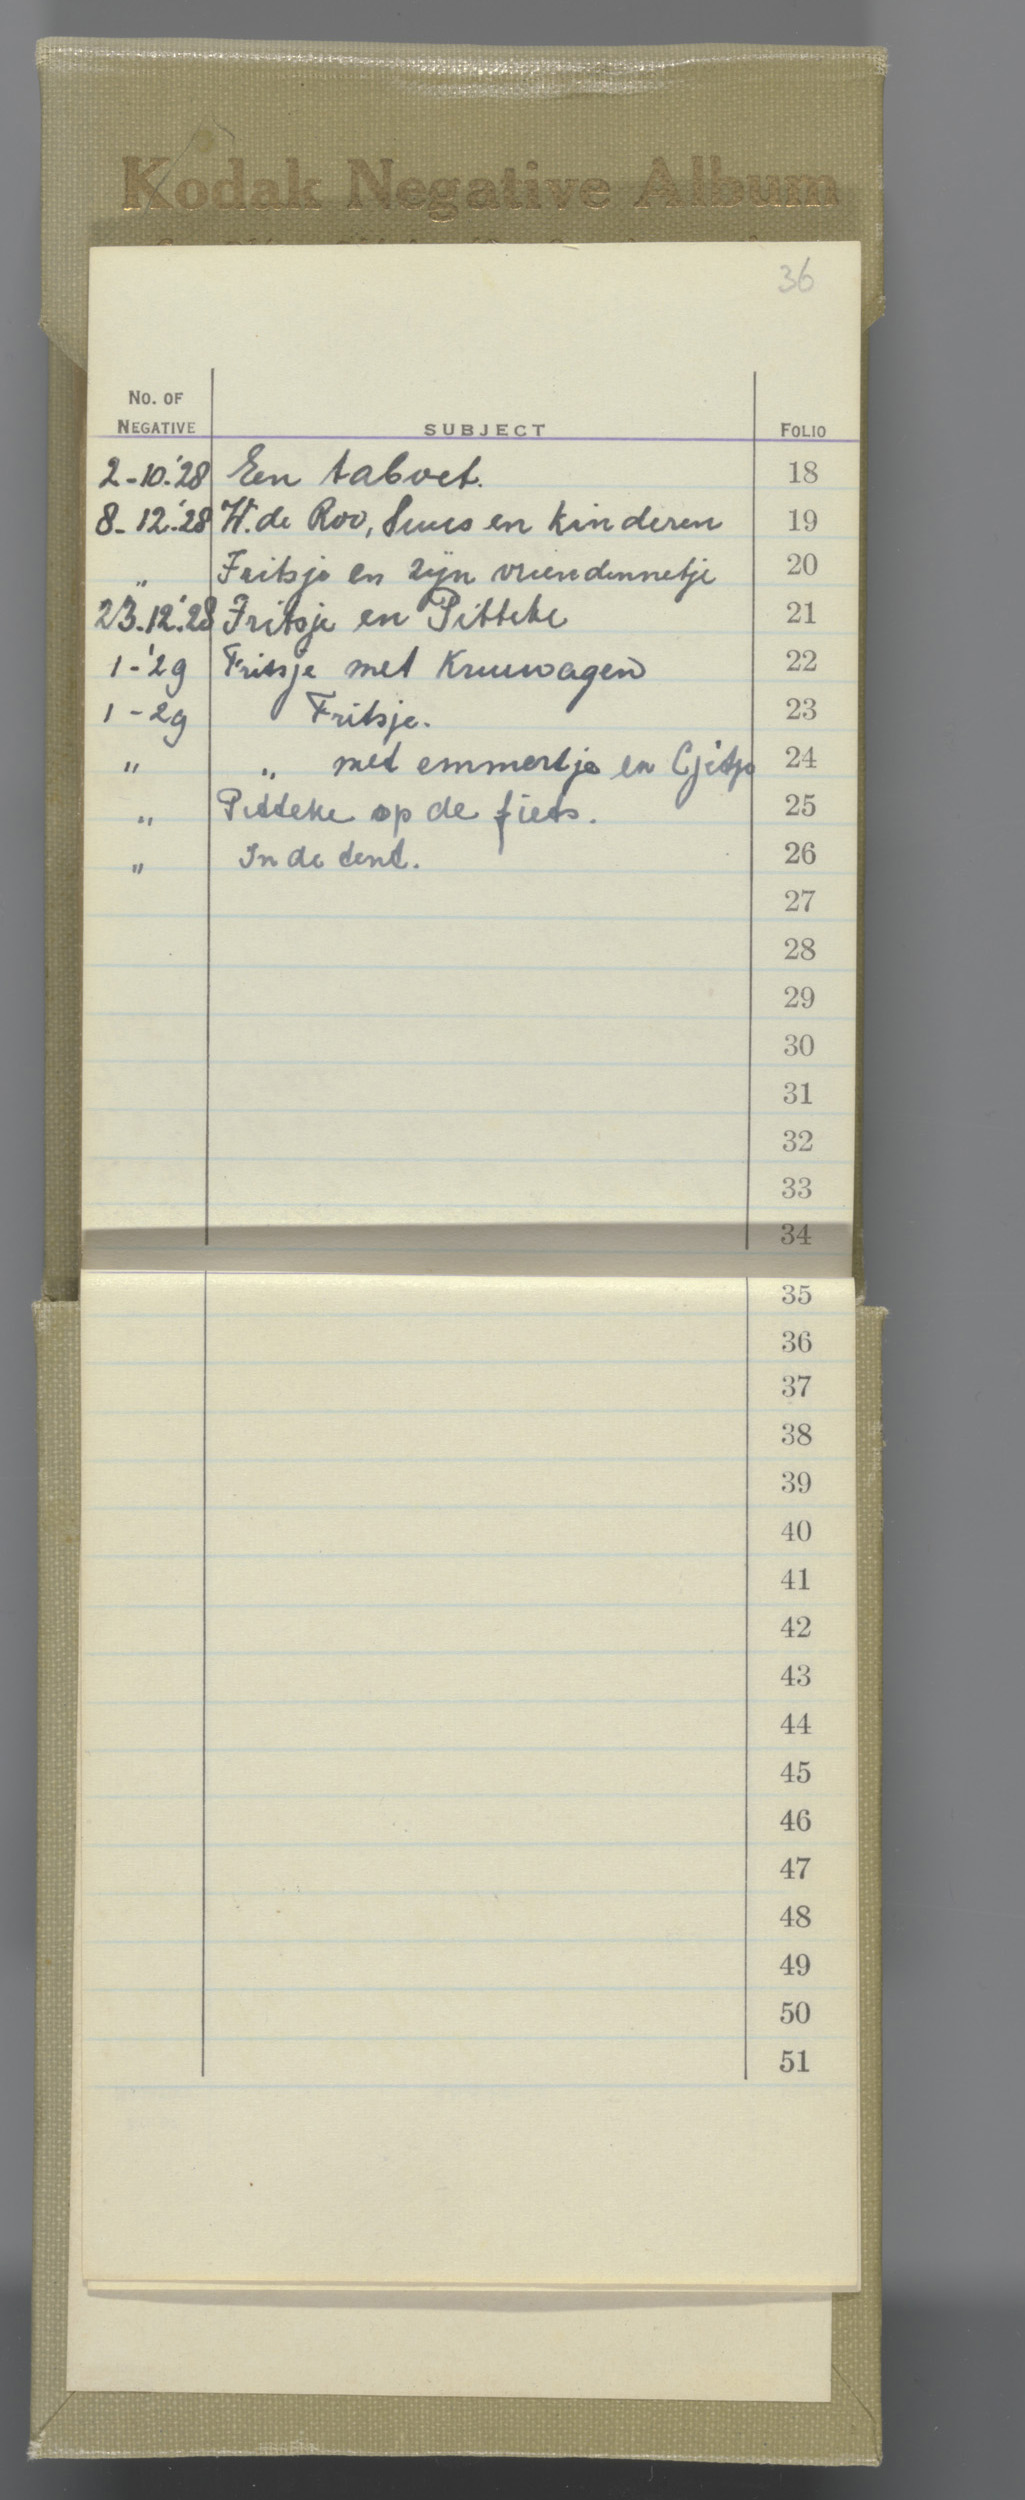 Kodak Negative Album
36
No. OF NEGATIVE SUBJECT FOLIO
2-10-'28 Een taboet. 18
8-12-'28 W. de Roo, Suus en kinderen 19
„ Fritsje en zijn vriendinnetje 20
23.12.'28 Fritsje en Pitteke 21
1-'29 Fritsje met Kruiwagen 22
1-29 Fritsje. 23
„ „ met emmertje en 24
„ Pitteke op de fiets. 25
„ In de tent. 26
27
28
29
30
31
32
33
34
35
36
37
38
39
40
41
42
43
44
45
46
47
48
49
50
51